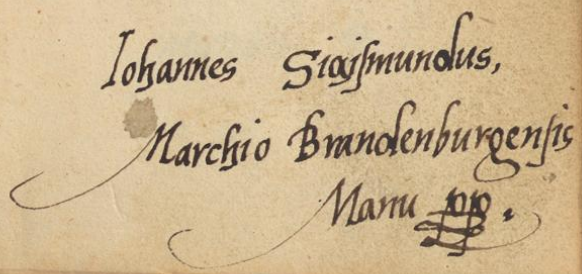 Iohannes Sigismundus,
Marchio Brandenburgensis
Manu pp.